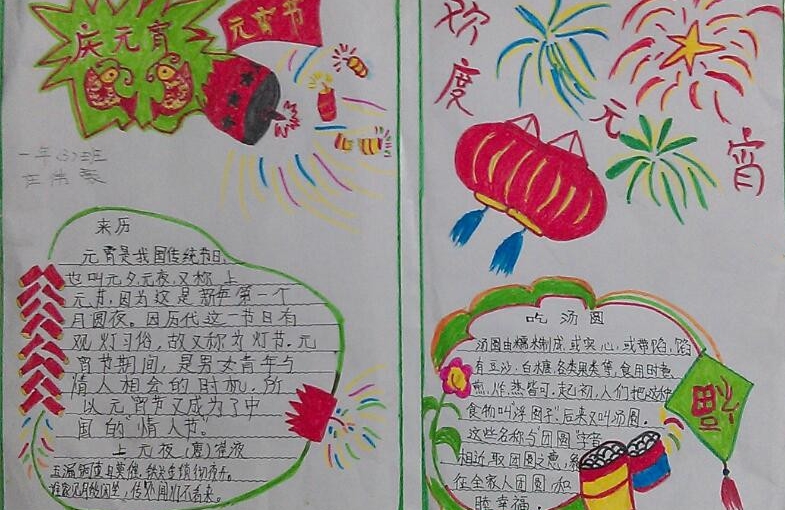 庆元宵
元宵节
一年(3)班
来历
元宵是我国传统节日、
也叫元夕、元夜、又称上
元节。因为这是新年第一个
月圆夜。因历代这一节日有
观灯习俗，故又称为灯节。元
宵节期间，是男女青年与
情人相会的时机，所
以元宵节又成为了中
国的“情人节”。
上元夜（唐）崔液
玉漏铜壶且莫催，铁关金锁彻夜开。
谁家见月能闲坐，何处闻灯不看来。
欢度元宵
吃汤圆
汤圆由糯米制成，或实心，或带馅，馅
有豆沙、白糖、各类果类等，食用时煮、
煎、炸、蒸皆可。起初，人们把这种
食物叫“浮圆子”后来又叫汤圆。
这些名称与“团圆”字音
相近，取团圆之意，
征全家人团圆，和
睦幸福。
福